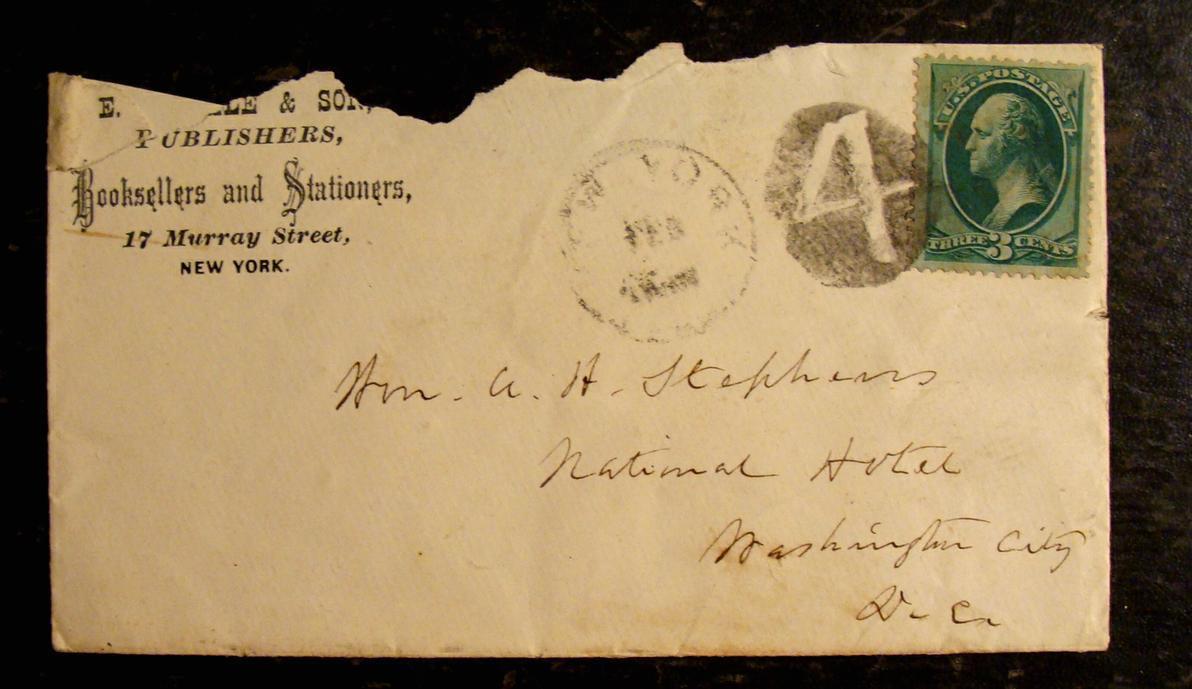 E. & SON,
PUBLISHERS,
Booksellers and Stationers,
17 Murray Street,
NEW YORK.
W YORK
FEB
4
U.S. POSTAGE
THREE 3 CENTS
Hon. A. H. Stephens
National Hotel
Washington City
D. C.